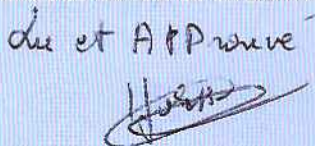 Lu et APProuvé